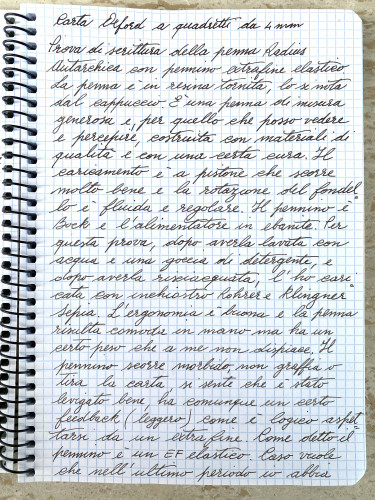 Carta Oxford a quadretti da 4 mm
Prova di scrittura della penna Radius
Autarchica con pennino extrafine elastico
La penna è in resina tornita, lo si nota
dal cappuccio. È una penna di misura
generosa e, per quello che posso vedere
e percepire, costruita con materiali di
qualità e con una certa cura. Il
caricamento è a pistone che scorre
molto bene e la rotazione del fondel=
lo è fluida e regolare. Il pennino è
Bock e l'alimentatore in ebanite. Per
questa prova, dopo averla lavata con
acqua e una goccia di detergente, e
dopo averla risciacquata, l'ho cari=
cata con inchiostro Rohrer e Klingner
Sepia. L'ergonomia è buona e la penna
risulta comoda in mano ma ha un
certo peso che a me non dispiace. Il
pennino scorre morbido, non graffia o
tira la carta, si sente che è stato
levigato bene, ha comunque un certo
feedback (leggero) come è logico aspet=
tarsi da un extra fine. Come detto il
pennino è un EF elastico. Caso vuole
che nell'ultimo periodo io abbia